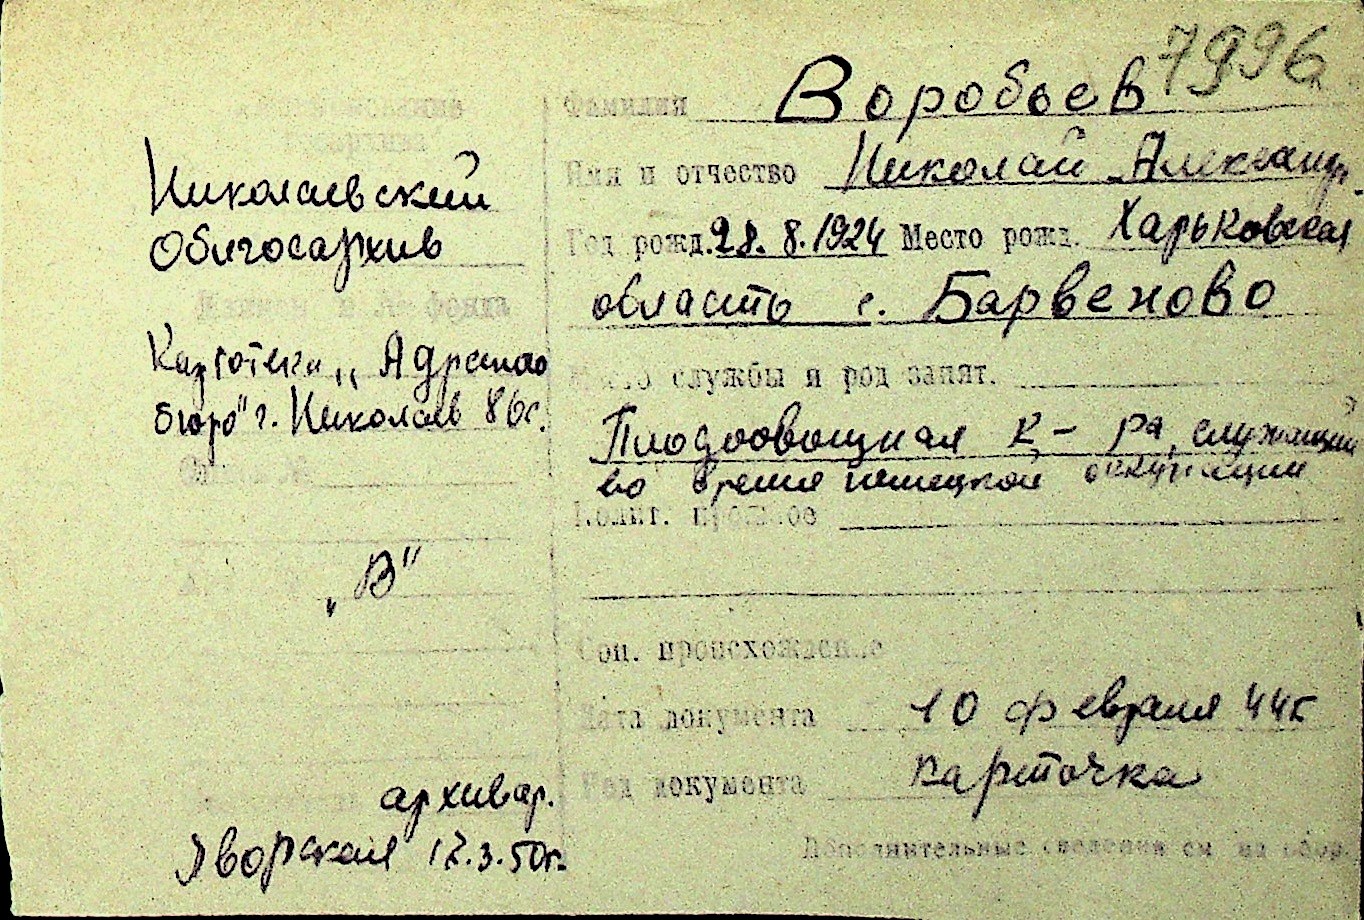 7996
Фамилия Воробьев
Имя и отчество Николай Александр.
Год рожд. 28.8.1924 Место рожд. Харьковская
область с. Барвеново
Место службы и род занят.
Плодоовощная к-ра, служащий
во время немецкой оккупации
Полит. прошлое
Соц. происхождение
Дата документа 10 февраля 44г
Род документа карточка
Дополнительные сведения см. на обор.
Николаевский
Облгосархив
фонда
Картотека „Адресно
бюро" г. Николаев 86с.
„В"
архивар.
Яворская 17.3.50г.